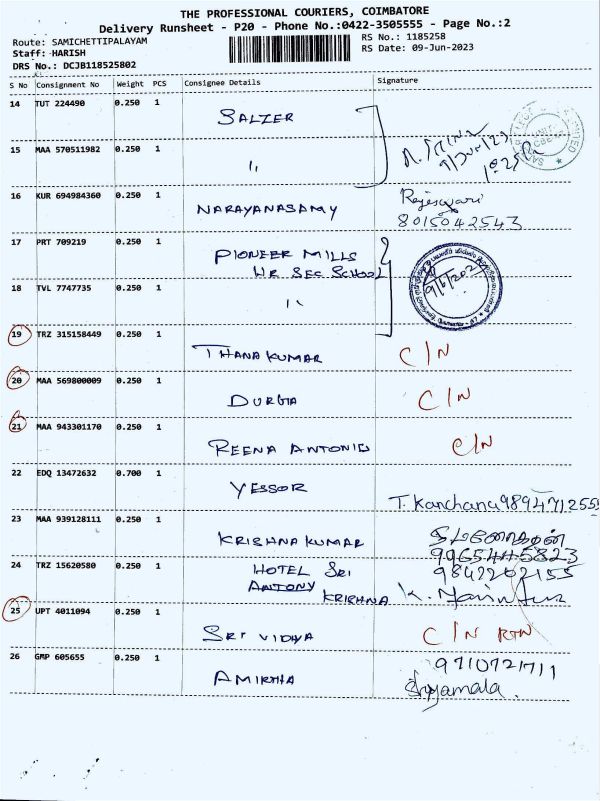 THE PROFESSIONAL COURIERS, COIMBATORE
Delivery Runsheet - P20 - Phone No.:0422-3505555 - Page No.:2
Route: SAMICHETTIPALAYAM
RS No.: 1185258
Staff: HARISH
RS Date: 09-Jun-2023
DRS No.: DCJB118525802
S No Consignment No Weight PCS Consignee Details Signature
14 TUT 224490 0.250 1
SALZER
15 MAA 570511982 0.250 1
"
16 KUR 694984360 0.250 1
NARAYANASAMY
Rajeswari
8015042543
17 PRT 709219 0.250 1
PIONEER MILLS
HR SEC SCHOOL
18 TVL 7747735 0.250 1
"
19 TRZ 315158449 0.250 1
THANAKUMAR C/N
20 MAA 569800009 0.250 1
DURGA C/N
21 MAA 943301170 0.250 1
REENA ANTONIO C/N
22 EDQ 13472632 0.700 1
YESSOR
T. Kanchana 9894712555
23 MAA 939128111 0.250 1
KRISHNA KUMAR
9965445823
24 TRZ 15620580 0.250 1
HOTEL SRI
9842262155
ANTONY
KRISHNA
25 UPT 4011094 0.250 1
SRI VIDHYA C/N RTN
26 GMP 605655 0.250 1
9710721711
AMIRTHA
Shyamala.